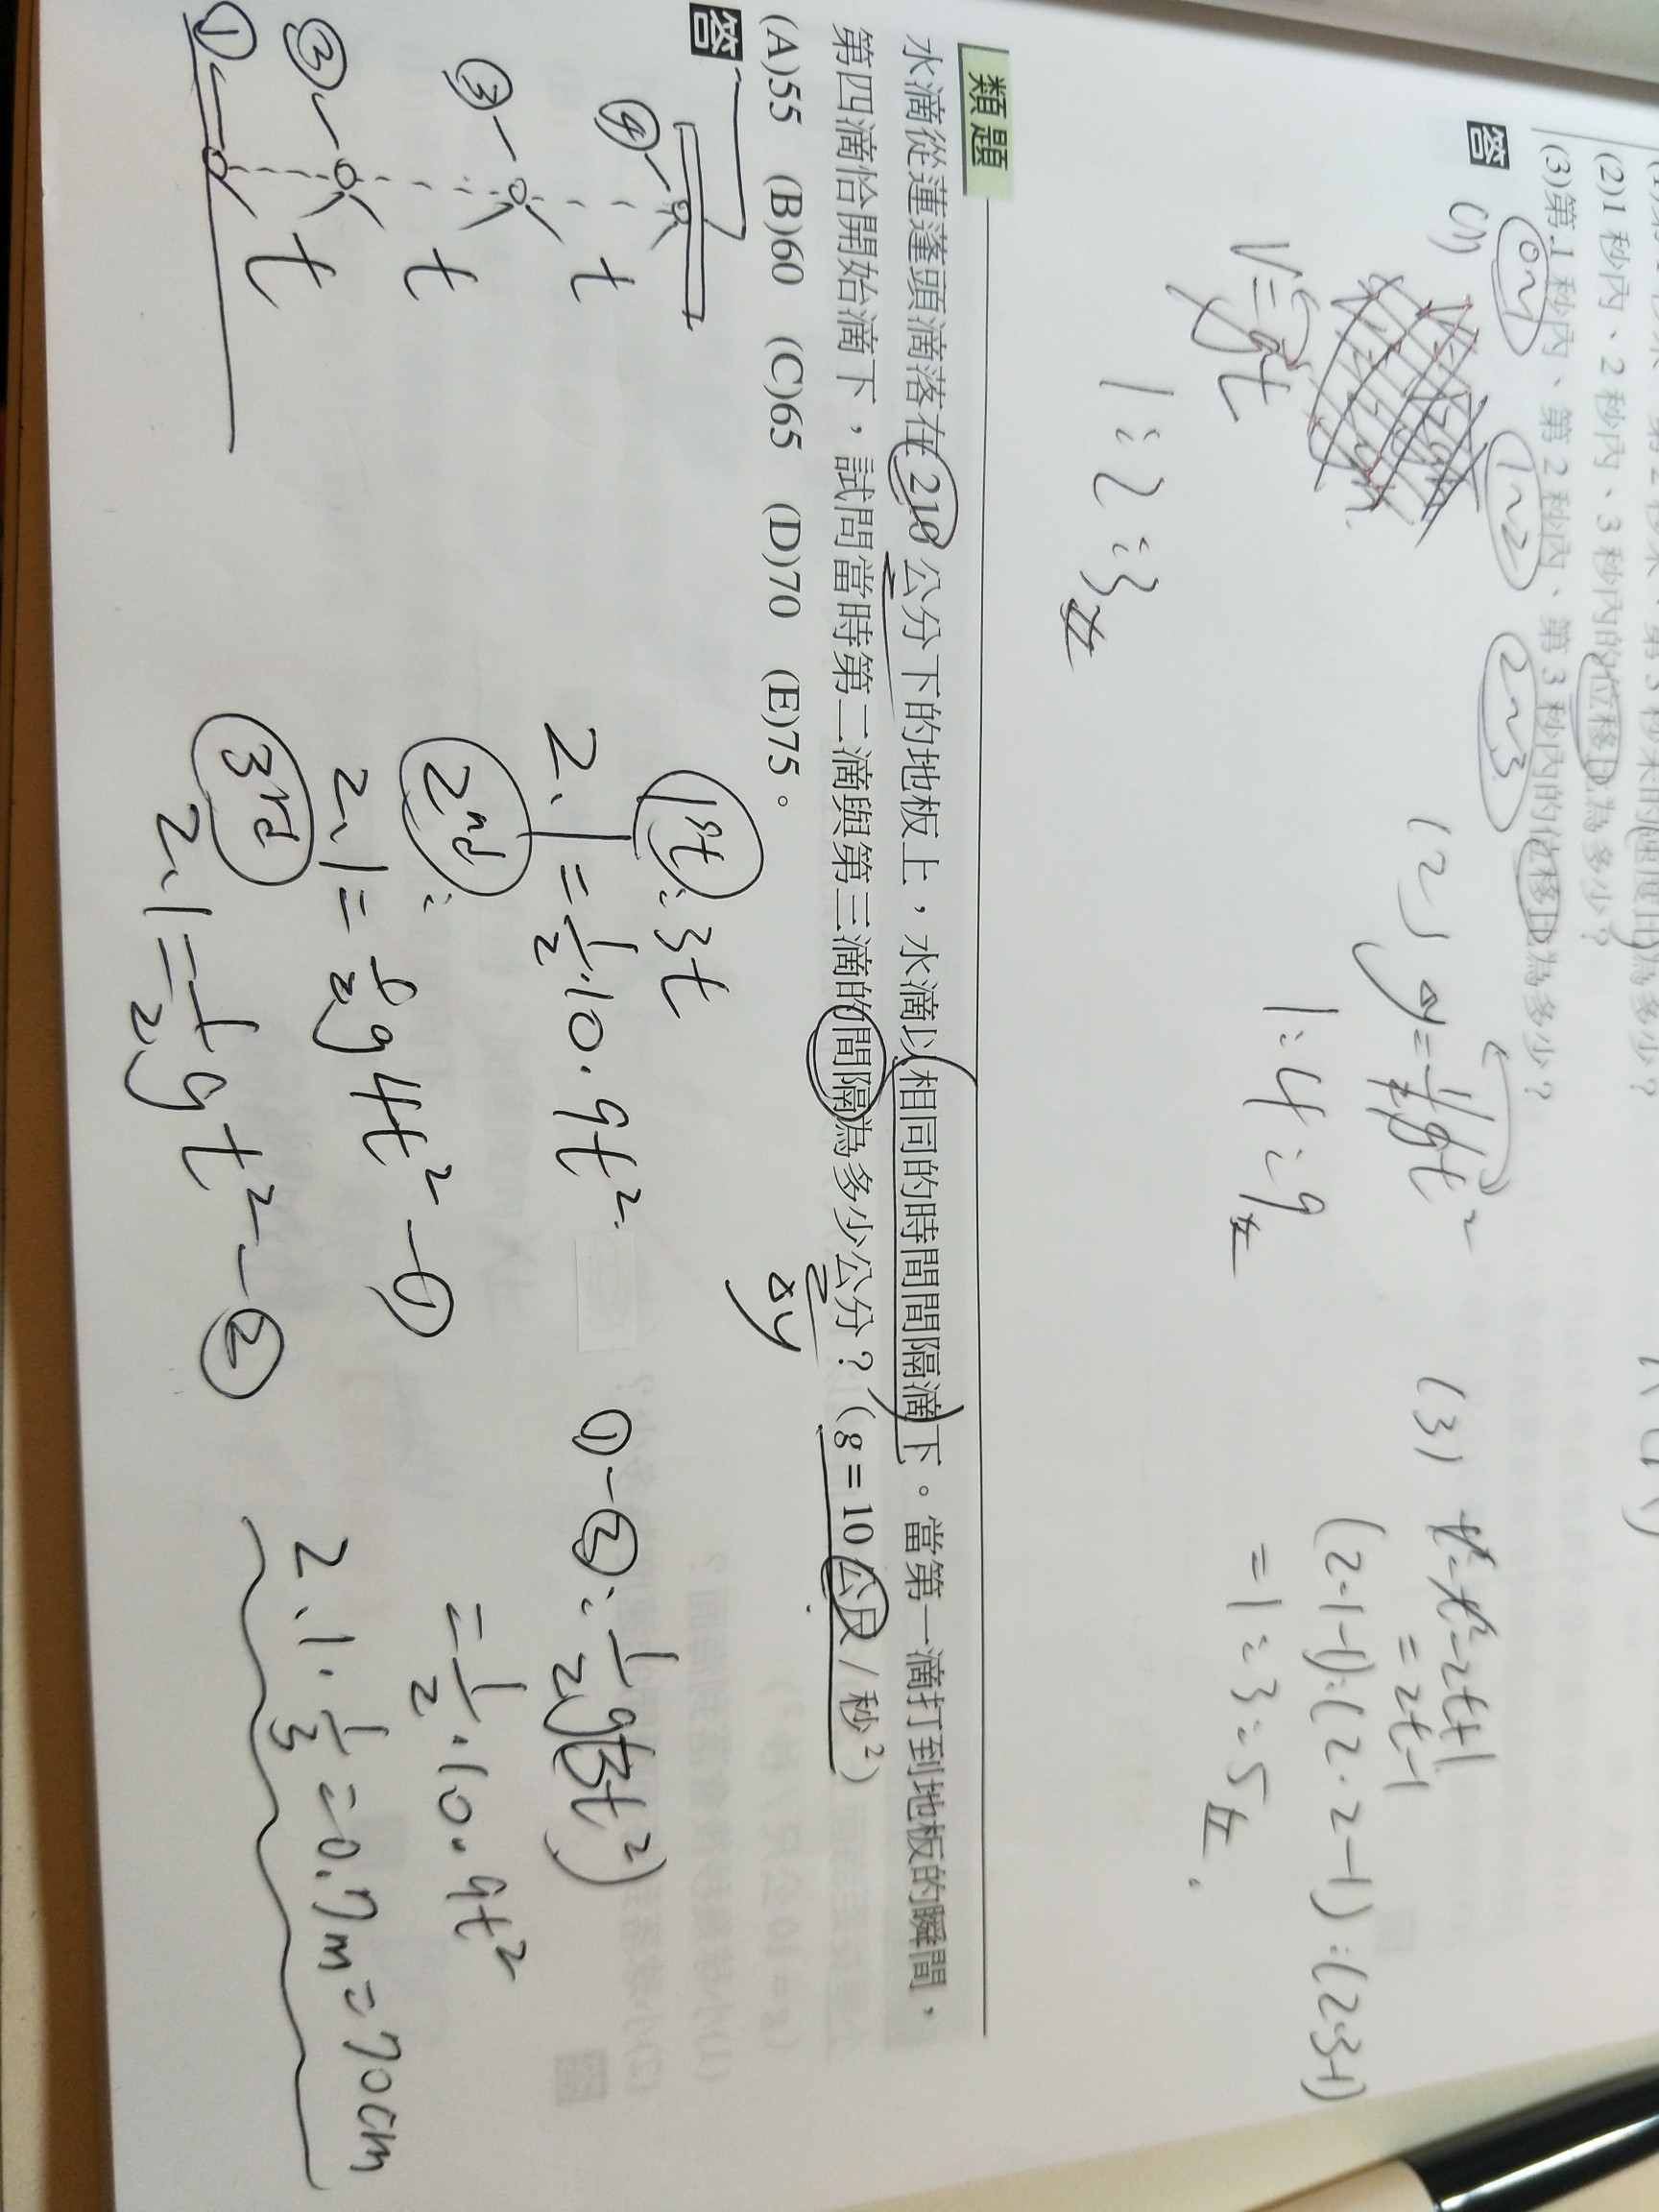 (2)1 秒內、2 秒內、3 秒內的位移比為多少?
(3)第 1 秒內、第 2 秒內、第 3 秒內的位移比為多少?
0~1 1~2 2~3
答 (1)
V=gt
1:2:3#
(2) Δy=½gt²
1:4:9#
(3)
=2t-1
(2·1-1):(2·2-1):(2·3-1)
=1:3:5#
類題
水滴從蓮蓬頭滴落在 210 公分下的地板上,水滴以相同的時間間隔滴下。當第一滴打到地板的瞬間,
第四滴恰開始滴下,試問當時第二滴與第三滴的間隔為多少公分?(g = 10 公尺/秒²)
Δy
(A)55 (B)60 (C)65 (D)70 (E)75。
答
④ t
③ t
② t
①
1st: 3t
2.1=½·10·9t²
2nd:
2.1=½g4t²-①
3rd
2.1=½gt²-②
①-②:½g(3t²)
=½·10·9t²
2.1·⅓=0.7m=70cm